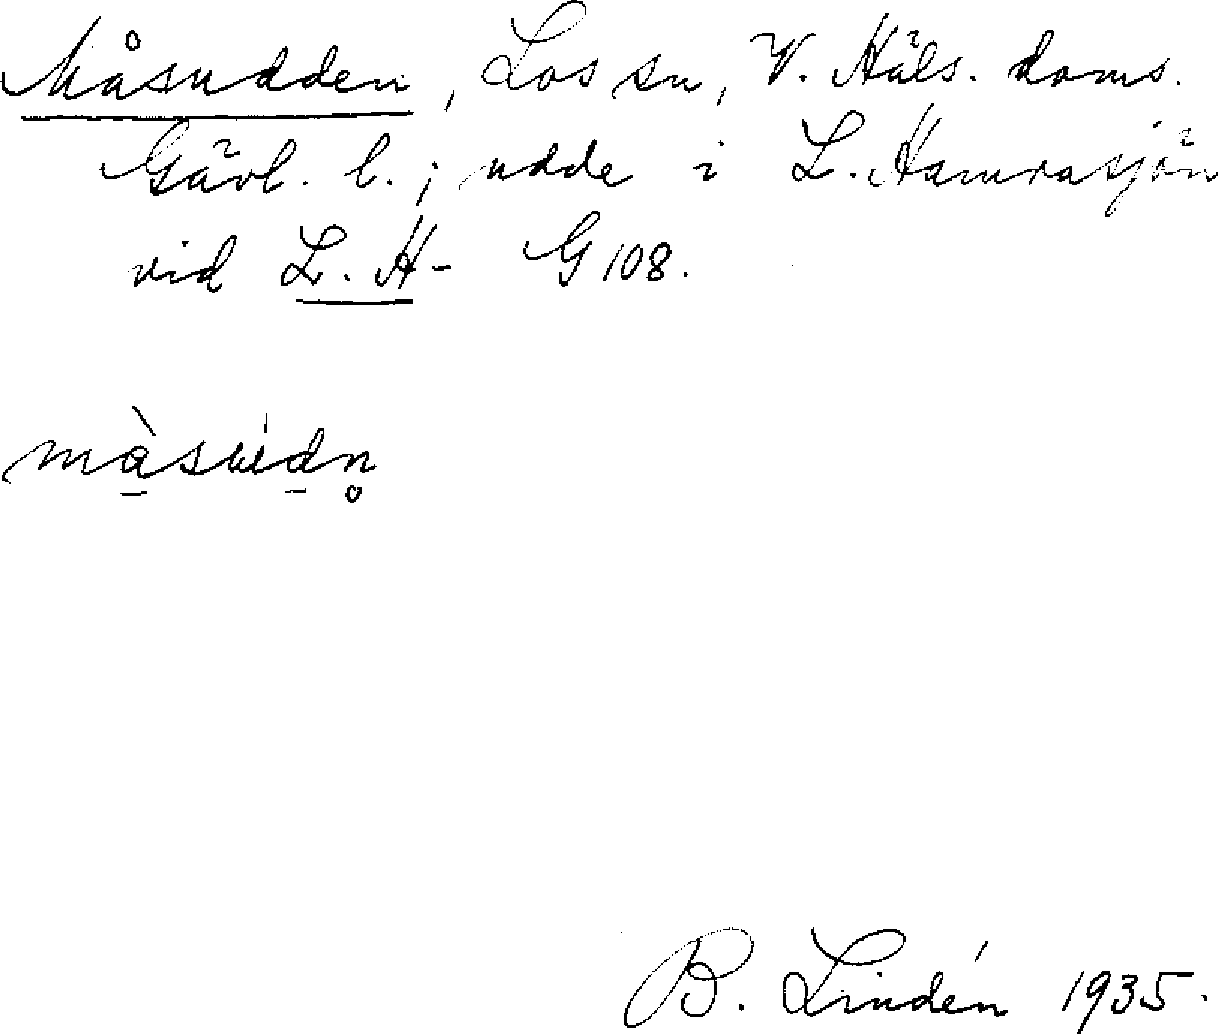 Måsudden, Los sn, V. Häls. doms.
Gävl. l.; udde i L. Hamrasjön
vid L. H- G 108.
màsúdn̥
B. Lindén 1935.